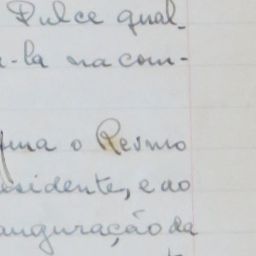 Dulce qual-
-la na com-
o Resmo
esidente, e ao
auguração da